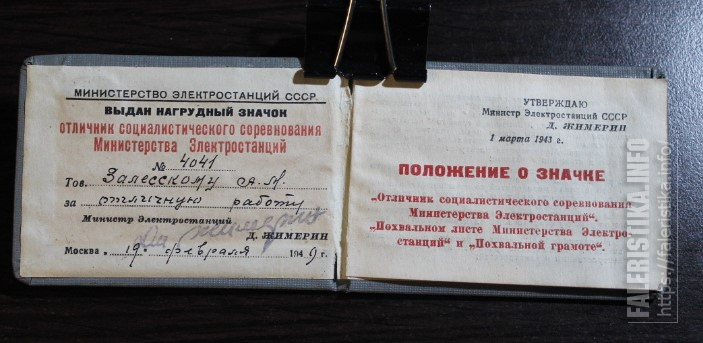 МИНИСТЕРСТВО ЭЛЕКТРОСТАНЦИЙ СССР.
ВЫДАН НАГРУДНЫЙ ЗНАЧОК
ОТЛИЧНИК СОЦИАЛИСТИЧЕСКОГО СОРЕВНОВАНИЯ
Министерства Электростанций
№ 4041
Тов. Залесскому А.М.
за отличную работу
Министр Электростанций
Д. ЖИМЕРИН
Москва 19 февраля 1949 г.
УТВЕРЖДАЮ
Министр Электростанций СССР
Д. ЖИМЕРИН
1 марта 1943 г.
ПОЛОЖЕНИЕ О ЗНАЧКЕ
„Отличник социалистического соревнования
Министерства Электростанций".
„Похвальном листе Министерства Электро-
станций" и „Похвальной грамоте".
FALERISTIKA.INFO
https://faleristika.info